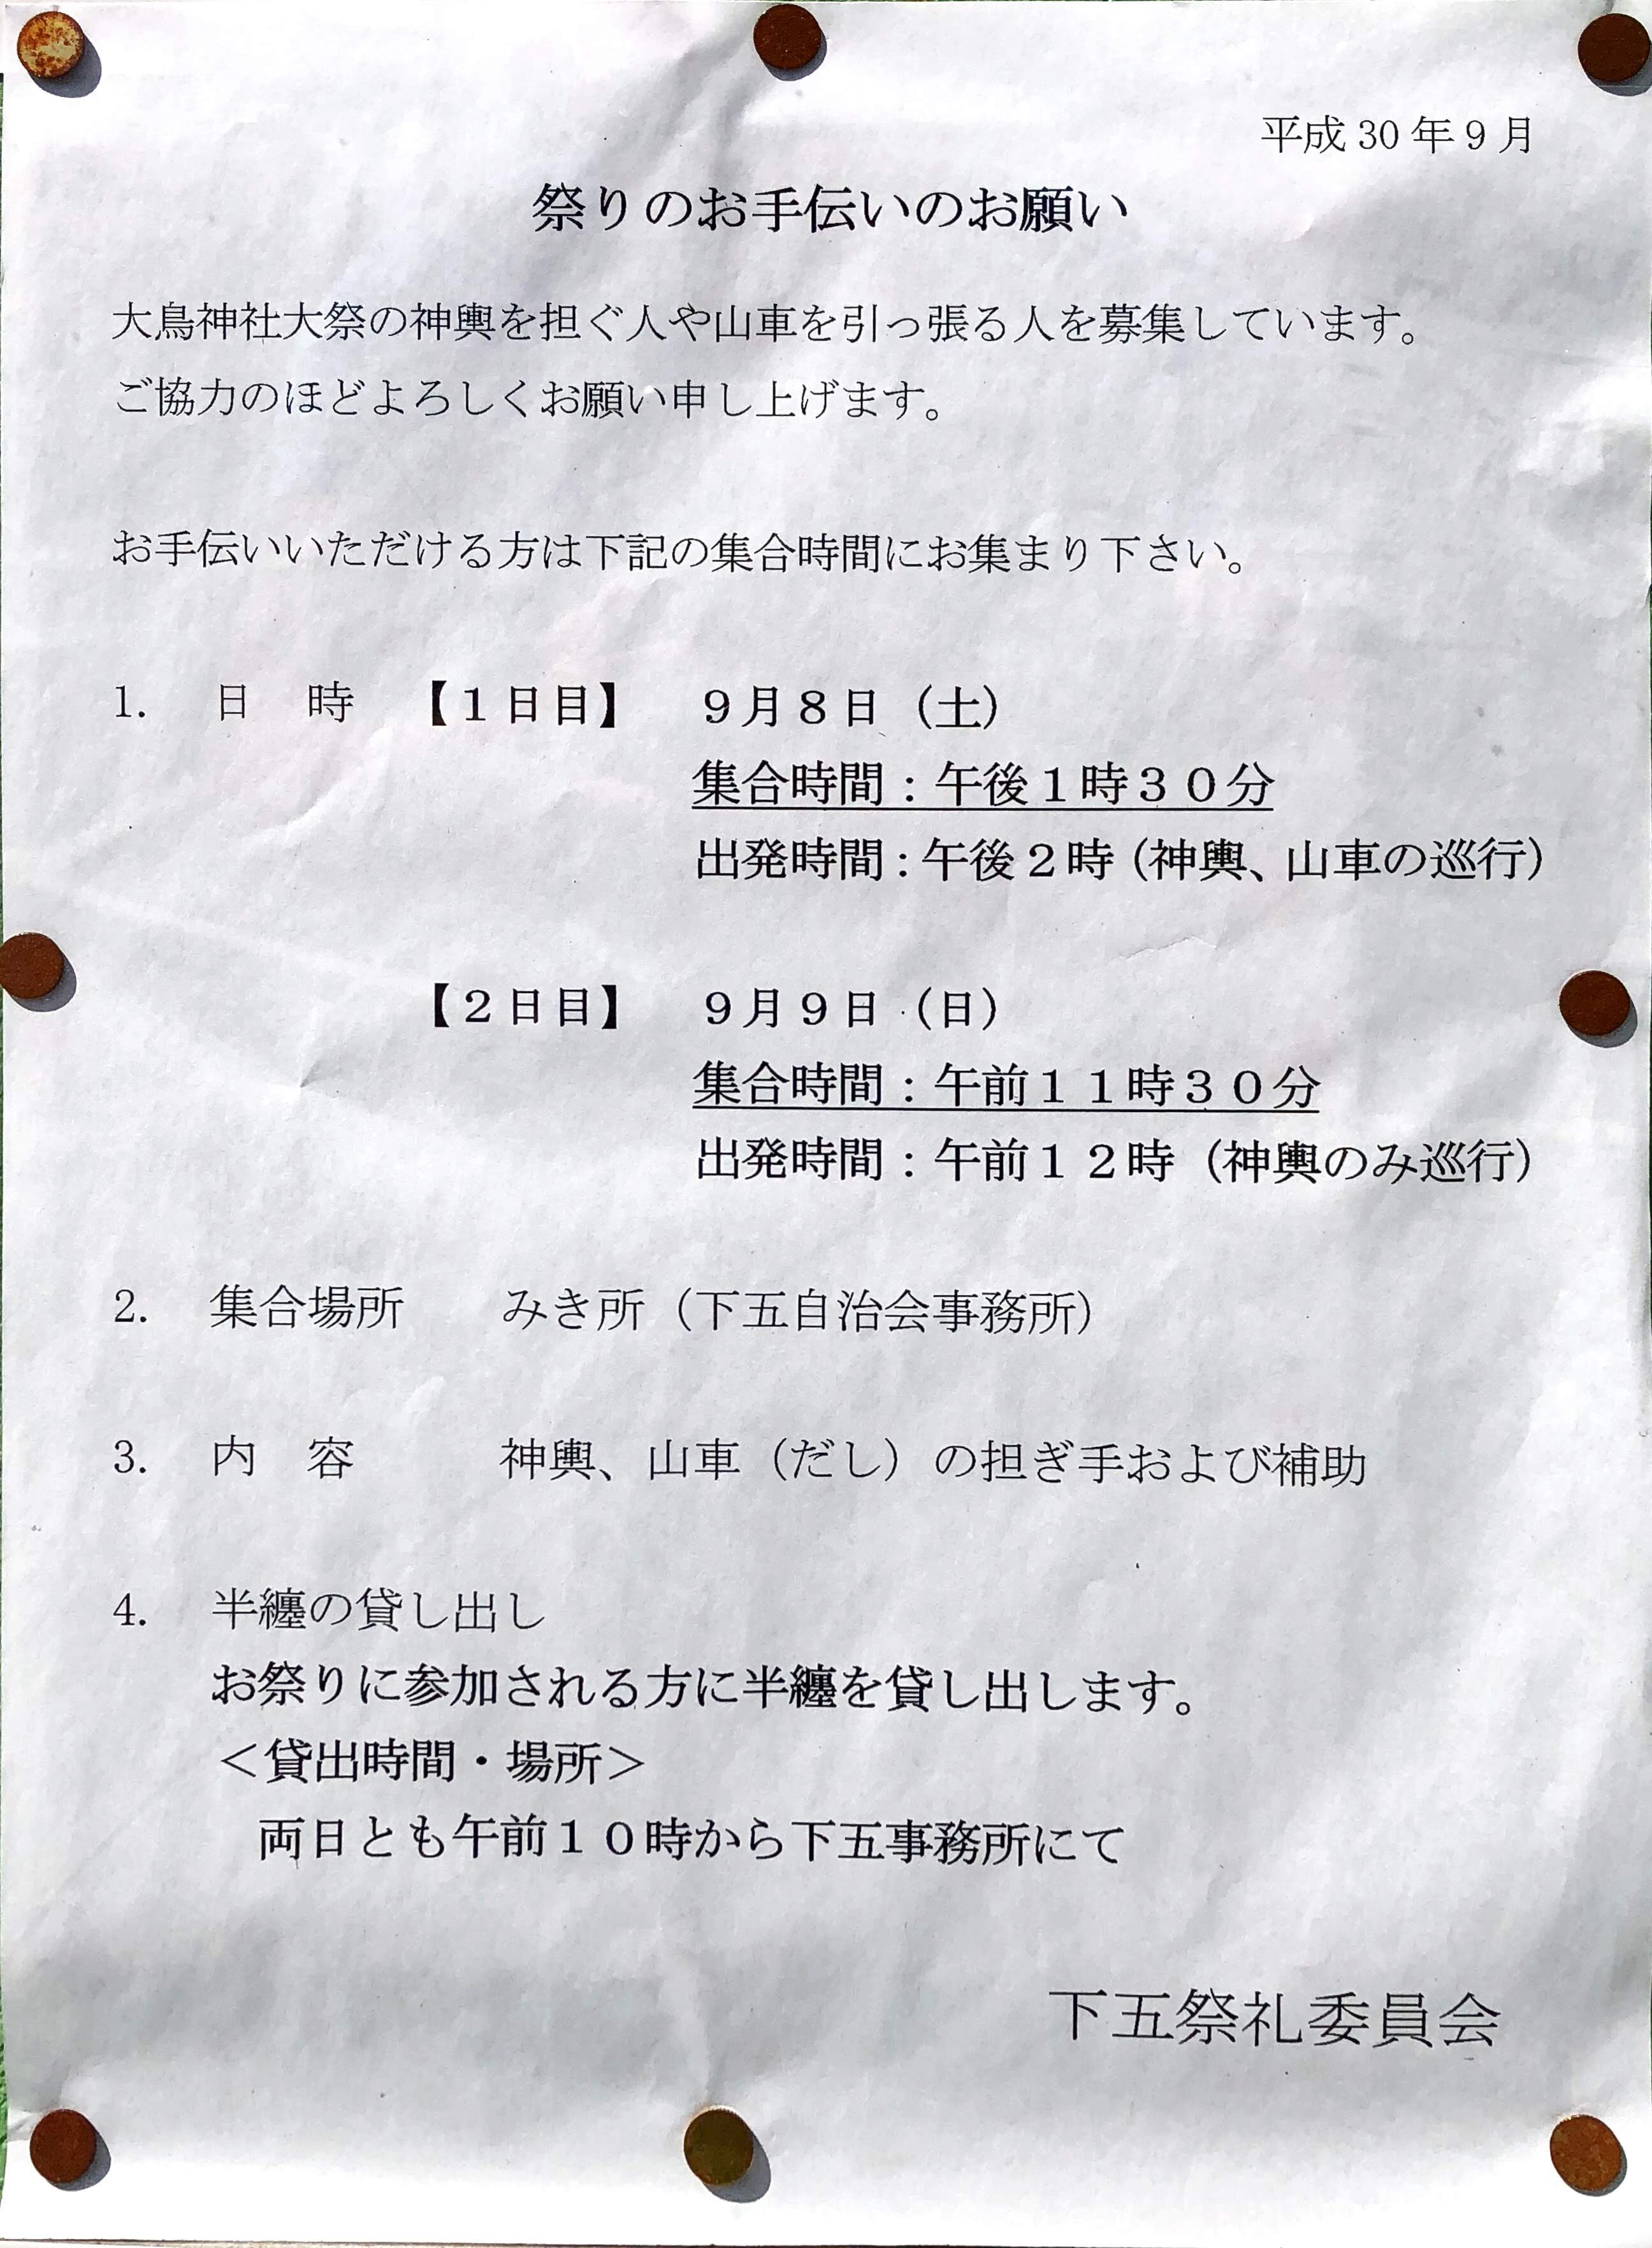 平成 30 年 9 月
祭りのお手伝いのお願い
大鳥神社大祭の神輿を担ぐ人や山車を引っ張る人を募集しています。
ご協力のほどよろしくお願い申し上げます。
お手伝いいただける方は下記の集合時間にお集まり下さい。
1. 日　時　【１日目】　９月８日（土）
集合時間：午後１時３０分
出発時間：午後２時（神輿、山車の巡行）
【２日目】　９月９日（日）
集合時間：午前１１時３０分
出発時間：午前１２時（神輿のみ巡行）
2. 集合場所　みき所（下五自治会事務所）
3. 内　容　神輿、山車（だし）の担ぎ手および補助
4. 半纏の貸し出し
お祭りに参加される方に半纏を貸し出します。
＜貸出時間・場所＞
両日とも午前１０時から下五事務所にて
下五祭礼委員会